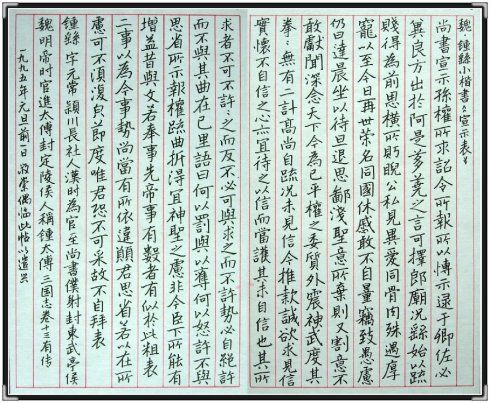 魏 鍾繇小楷書《宣示表》
尚書宣示孫權所求詔令所報所以博示逮于卿佐必
異良方出於阿是芻蕘之言可擇郎廟況繇始以疏
賤得為前思橫所睨公私見異愛同骨肉殊遇厚
寵以至今日再世榮名同國休慼敢不自量竊致愚慮
仍日達晨坐以待旦退思鄙淺聖意所棄則又割意不
敢獻聞深念天下今為已平權之委質外震神武度其
拳々無有二計高尚自疏況未見信今推款誠欲求見信
實懷不自信之心亦宜待之以信而當護其未自信也其所
求者不可不許々之而反不必可與求之而不許勢必自絕許
而不與其曲在己里語曰何以罰與以奪何以怒許不與
思省所示報權疏曲折得宜神聖之慮非今臣下所能有
增益昔與文若奉事先帝事有數者有似於此粗表
二事以為今事勢尚當有所依違願君思省若以在所
慮可不須復節度唯君恐不可采故不自拜表
鍾繇 字元常 潁川長社人漢時為官至尚書僕射封東武亭侯
魏明帝時官進太傅封定陵侯人稱鍾太傅三國志卷十三有传
一九九五年元旦前一日 棠偶临此帖以遺